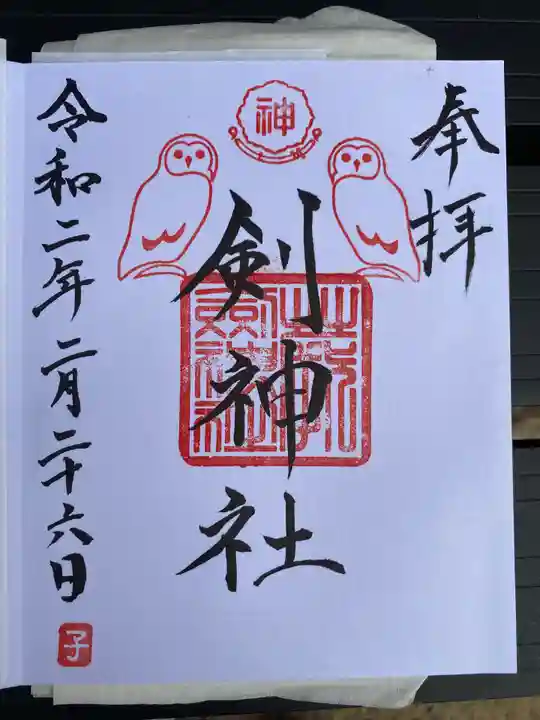 奉拝
神
剣神社
令和二年二月二十六日
子